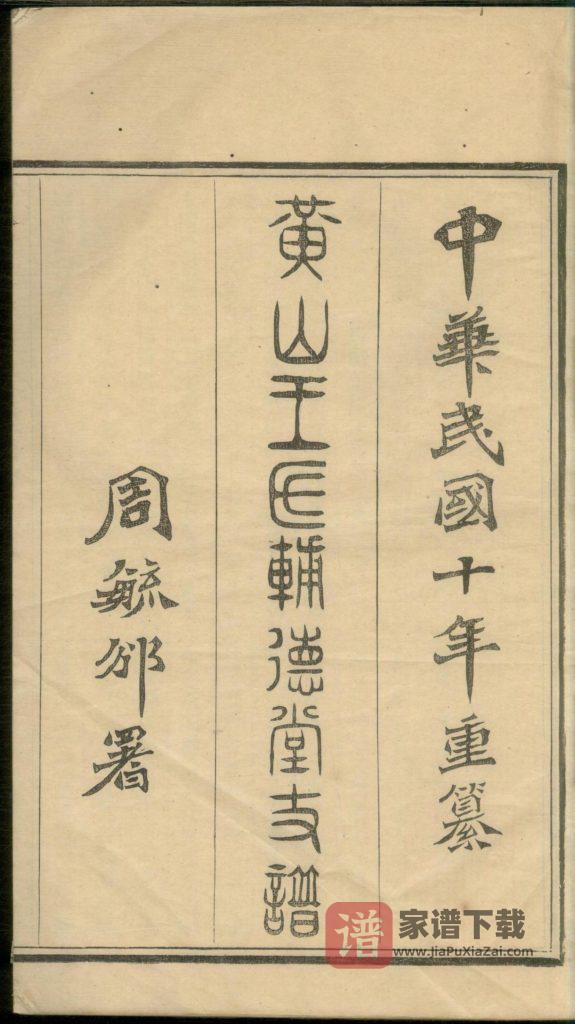 中華民國十年重纂
黃山王氏輔德堂支譜
周毓邠署
谱 家谱下载
www.JiaPuXiaZai.com